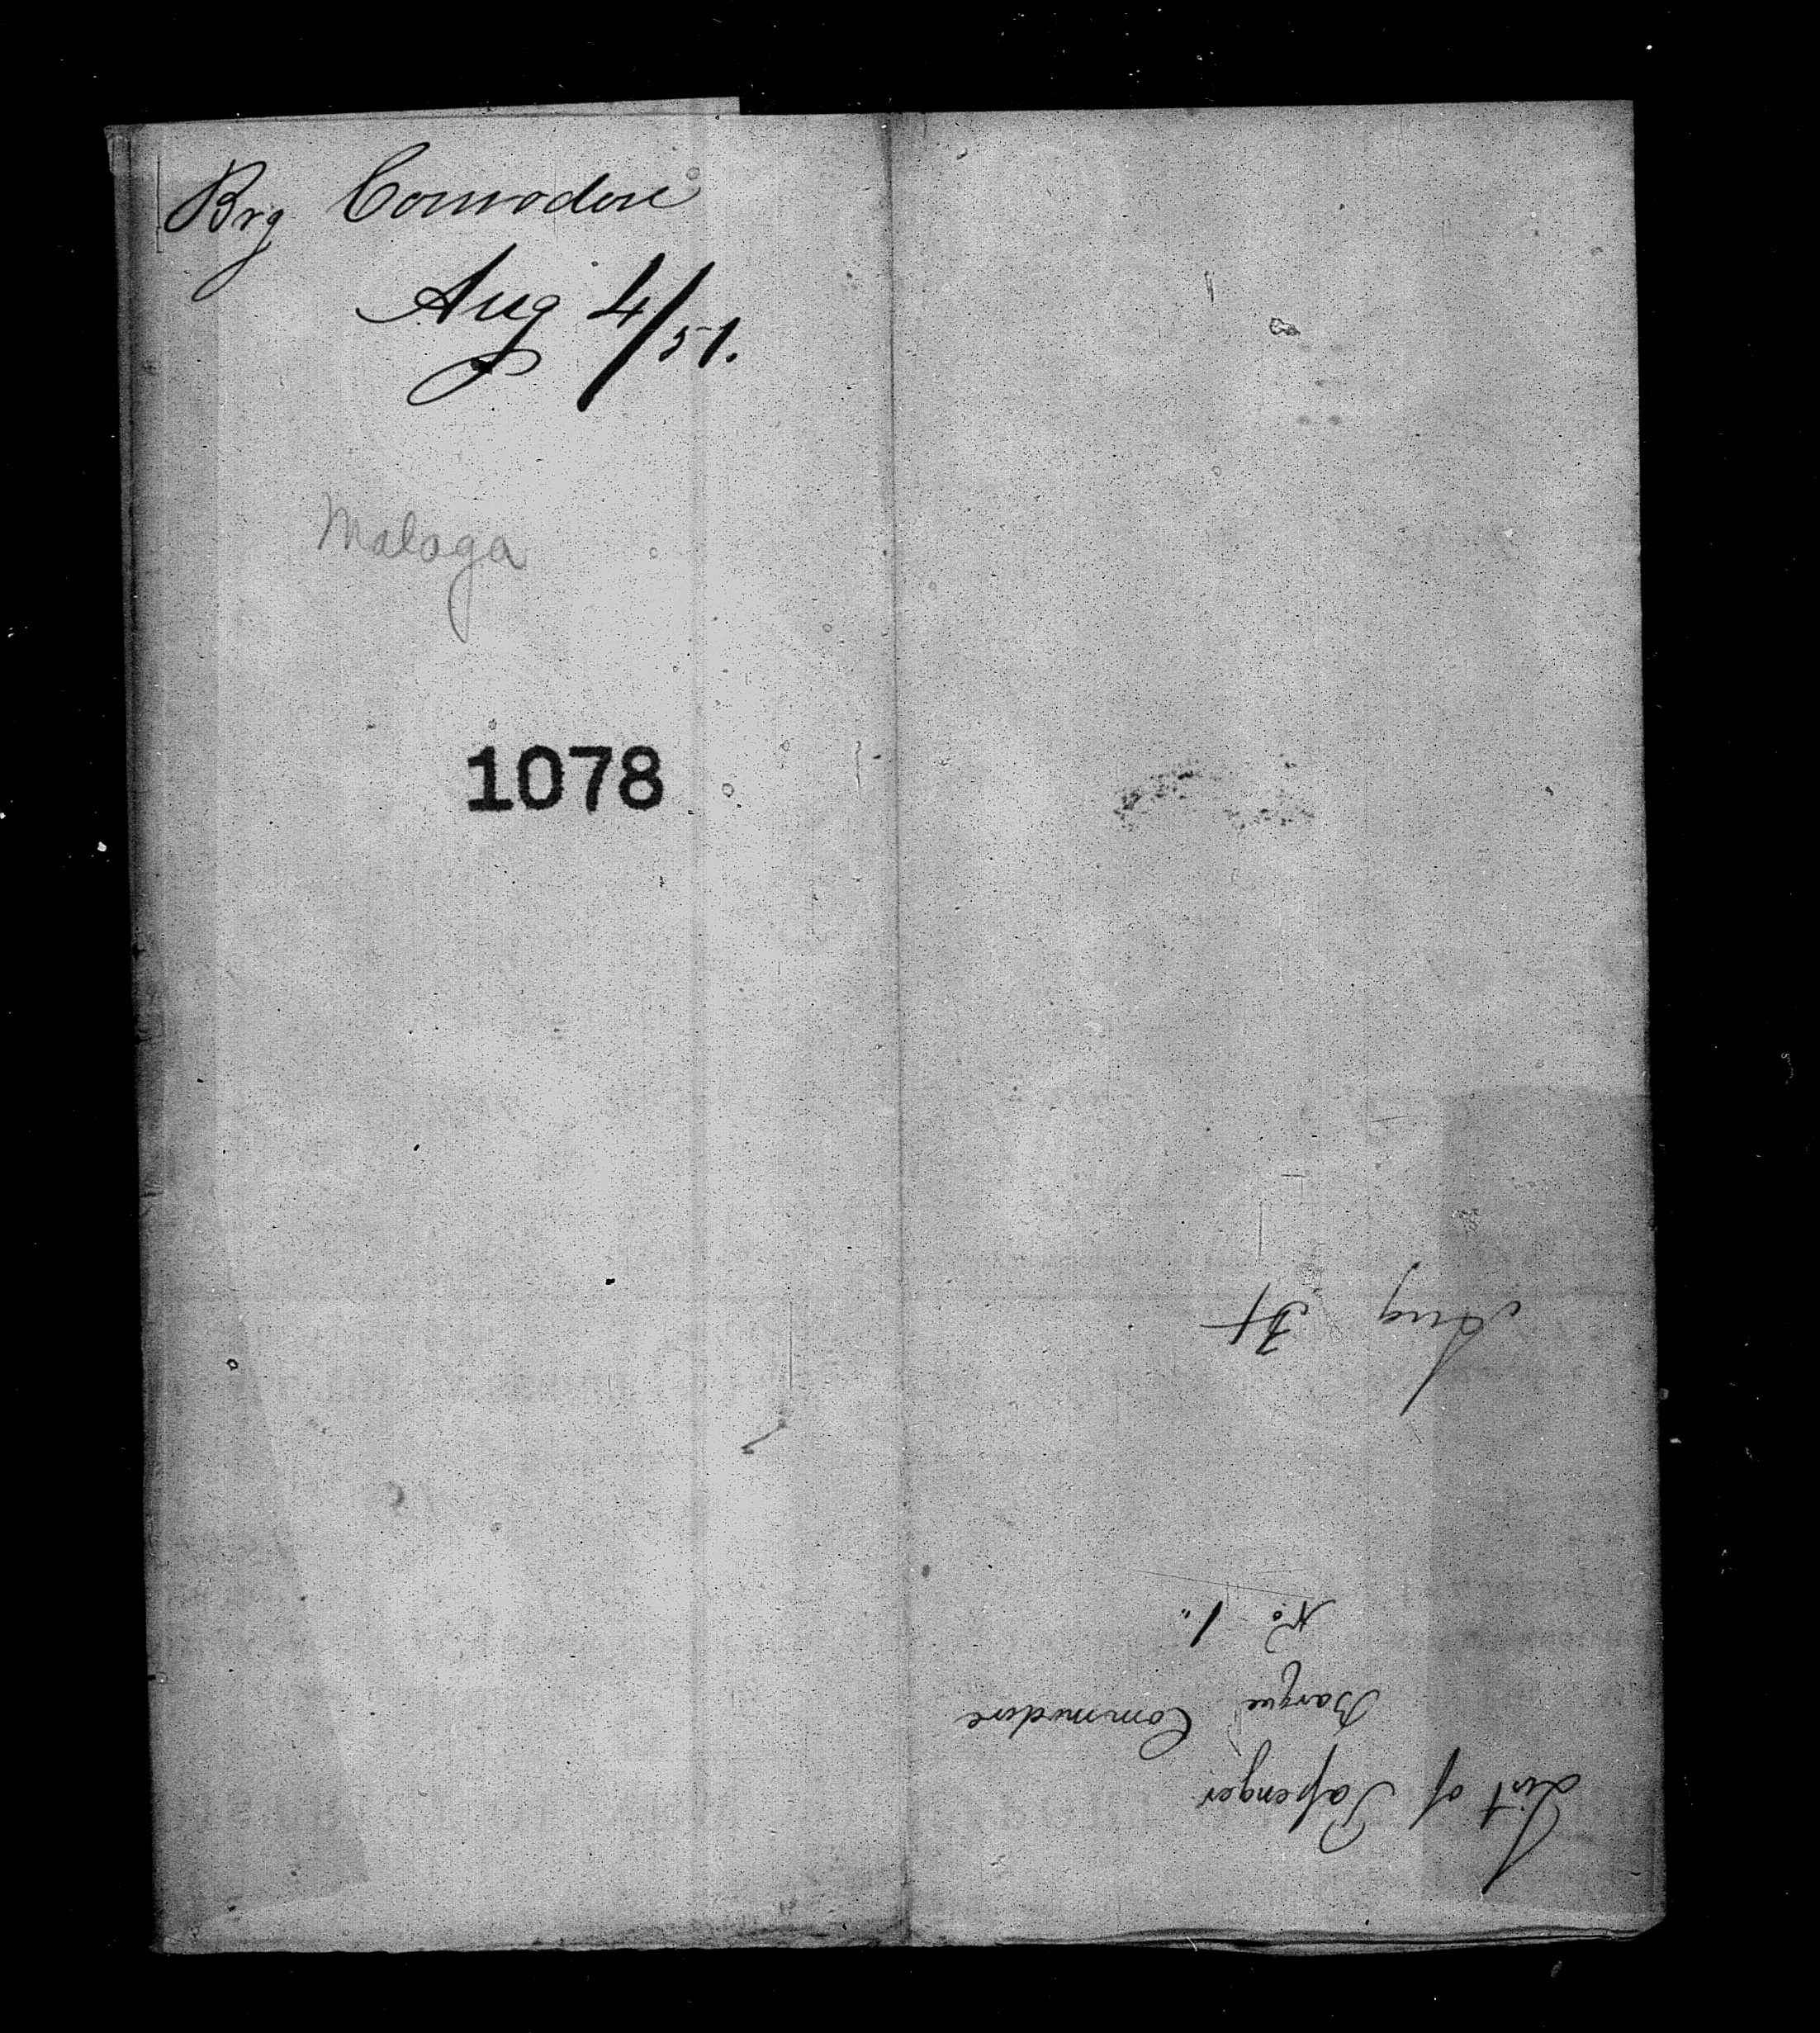 Brg Comodore
Aug 4/51.
Malaga
1078
List of Passenger
Barque Commodore
No. 1"
Aug